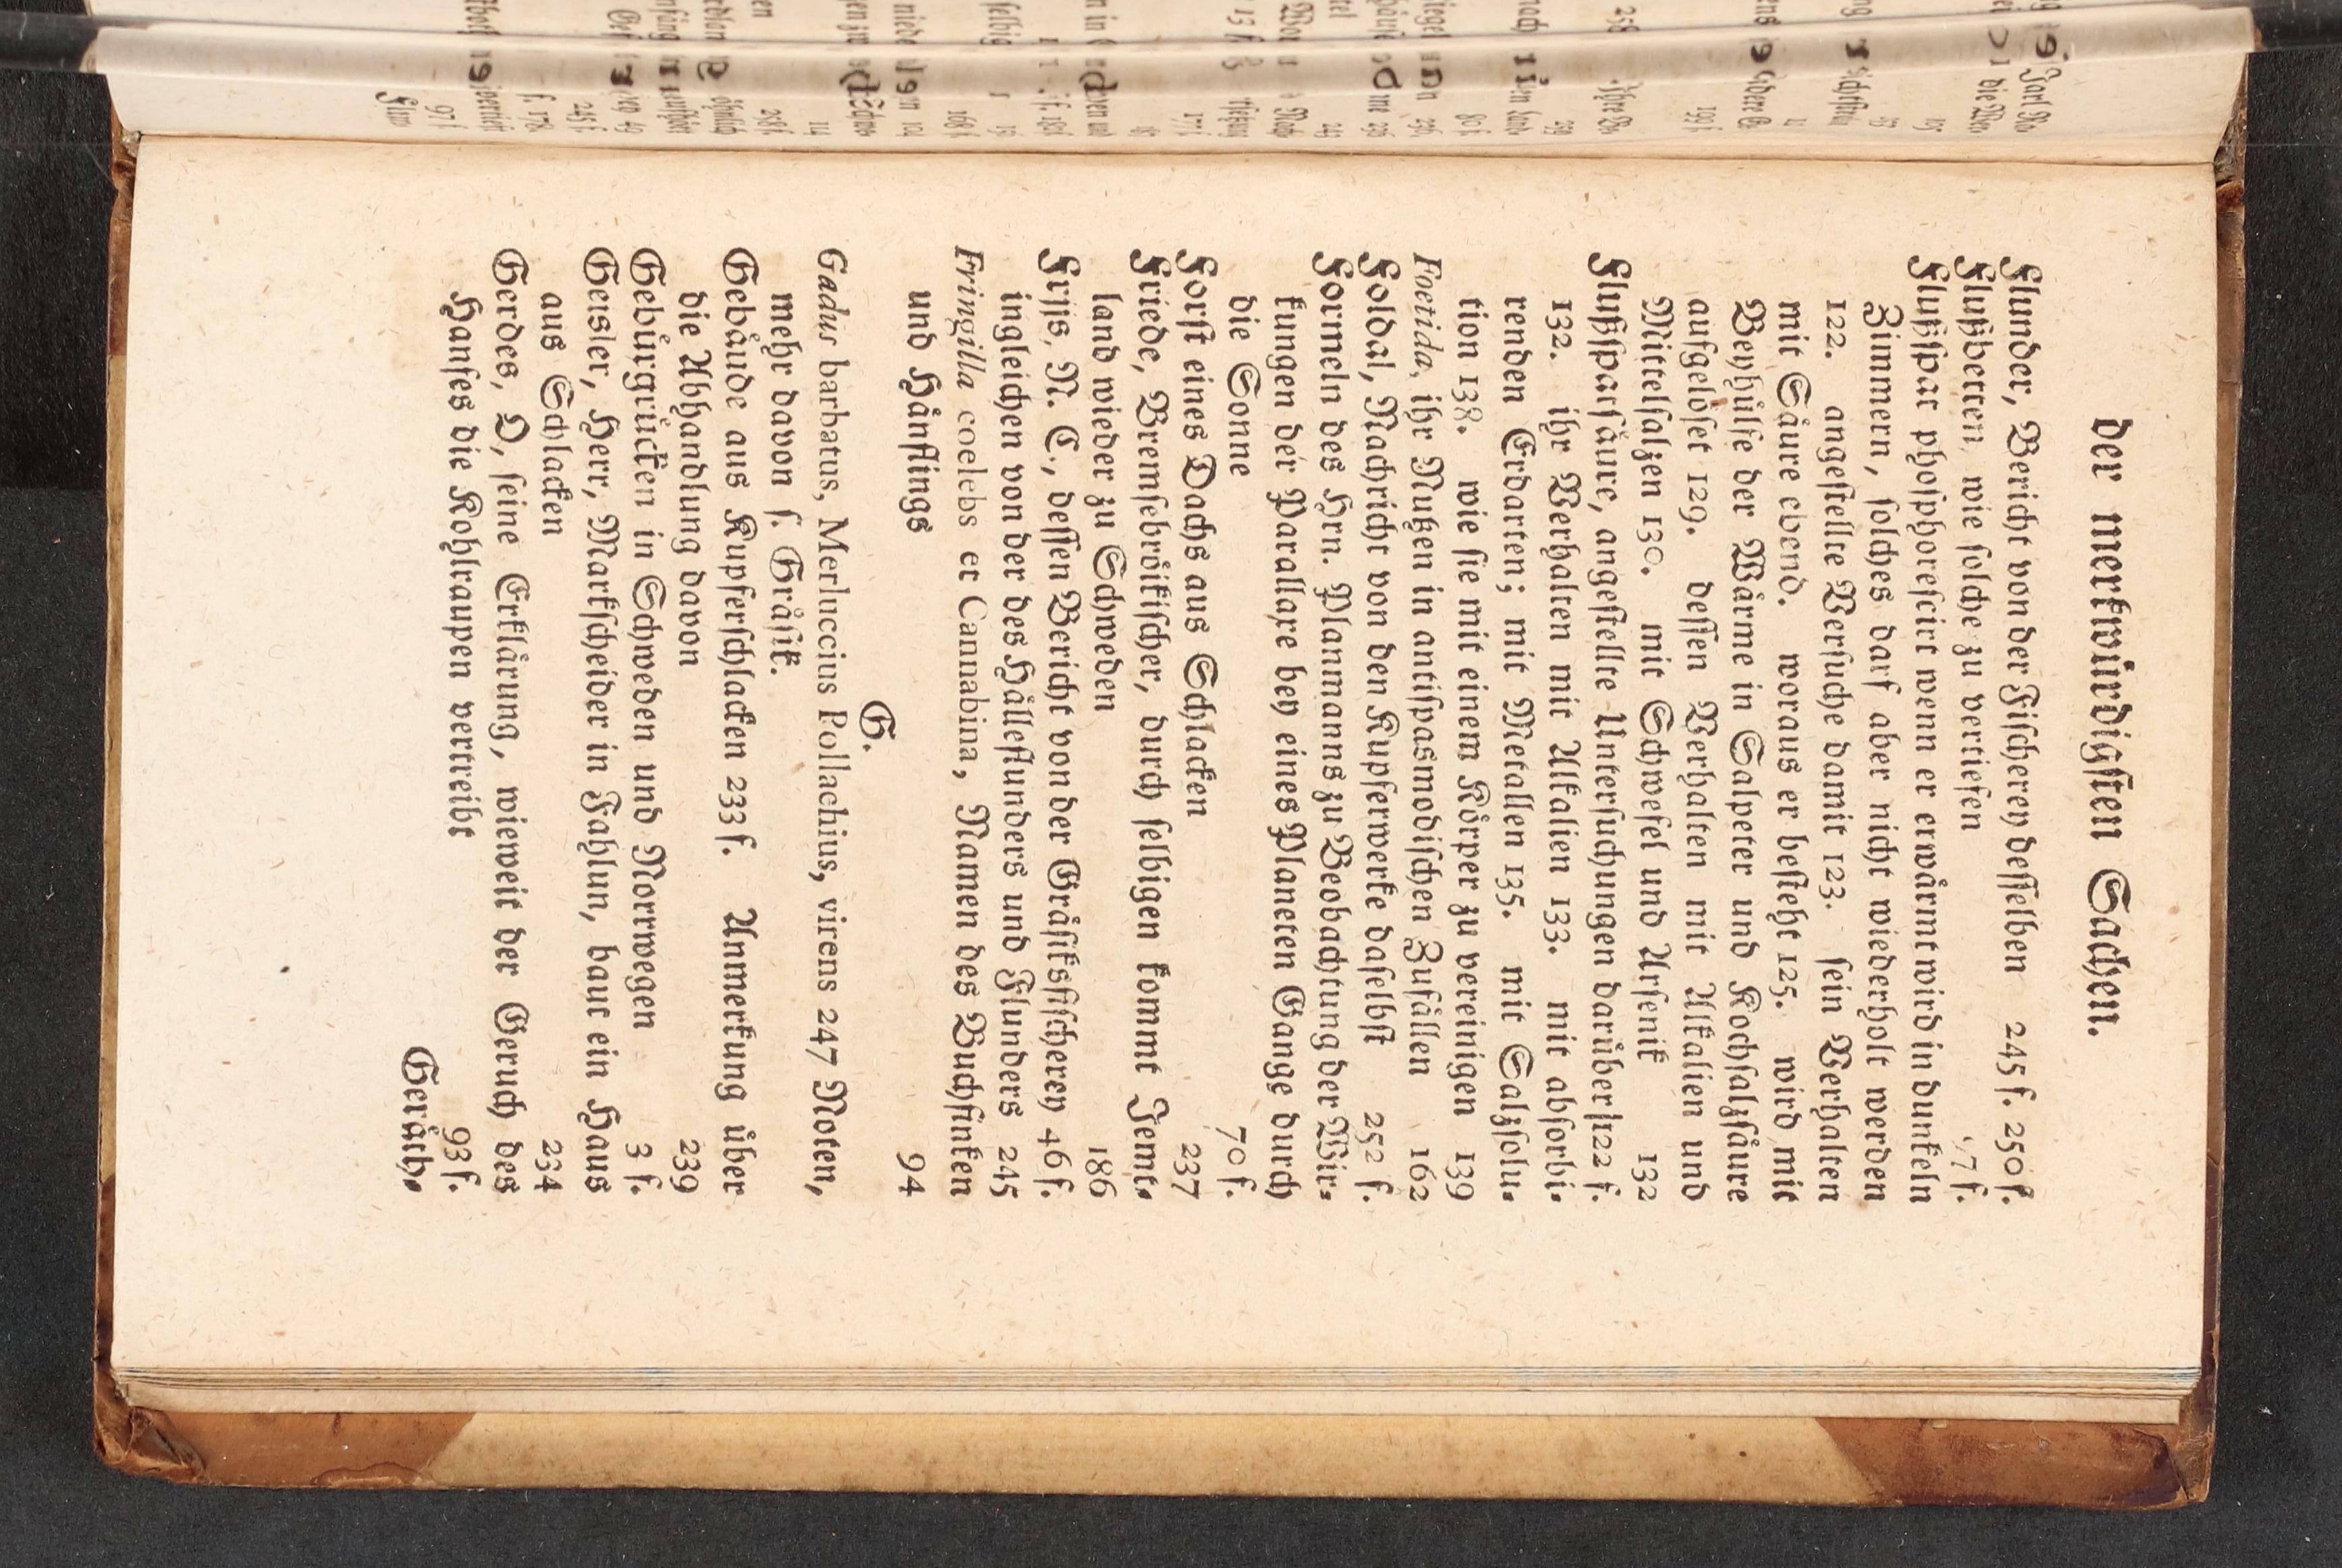 der merkwürdigsten Sachen.
Flunder, Bericht von der Fischerey desselben 245 f. 250 f.
Flußbetten, wie solche zu vertiefen 7 f.
Flußspat phosphorescirt wenn er erwärmt wird in dunkeln
Zimmern, solches darf aber nicht wiederholt werden
122. angestellte Versuche damit 123. sein Verhalten
mit Säure ebend. woraus er besteht 125. wird mit
Beyhülfe der Wärme in Salpeter und Kochsalzsäure
aufgelöset 129. dessen Verhalten mit Alkalien und
Mittelsalzen 130. mit Schwefel und Arsenik 132
Flußspatsäure, angestellte Untersuchungen darüber 122 f.
132. ihr Verhalten mit Alkalien 133. mit absorbi-
renden Erdarten; mit Metallen 135. mit Salzsolu-
tion 138. wie sie mit einem Körper zu vereinigen 139
Foetida, ihr Nutzen in antispasmodischen Zufällen 162
Foldal, Nachricht von den Kupferwerke daselbst 252 f.
Formeln des Hrn. Planmanns zu Beobachtung der Wir-
kungen der Parallaxe bey eines Planeten Gange durch
die Sonne 70 f.
Forst eines Dachs aus Schlacken 237
Friede, Bremsebröitischer, durch selbigen kommt Jemt-
land wieder zu Schweden 186
Friis, N. C., dessen Bericht von der Gräsiksfischerey 46 f.
ingleichen von der des Hälleflunders und Flunders 245
Fringilla coelebs et Cannabina, Namen des Buchfinken
und Hänflings 94
G.
Gadus barbatus, Merluccius Pollachius, virens 247 Noten,
mehr davon s. Gräsik.
Gebäude aus Kupferschlacken 233 f. Anmerkung über
die Abhandlung davon 239
Gebürgrücken in Schweden und Norrwegen 3 f.
Geisler, Herr, Markscheider in Fahlun, baut ein Haus
aus Schlacken 234
Gerdes, D, seine Erklärung, wieweit der Geruch des
Hanfes die Kohlraupen vertreibt 93 f.
Geräth-